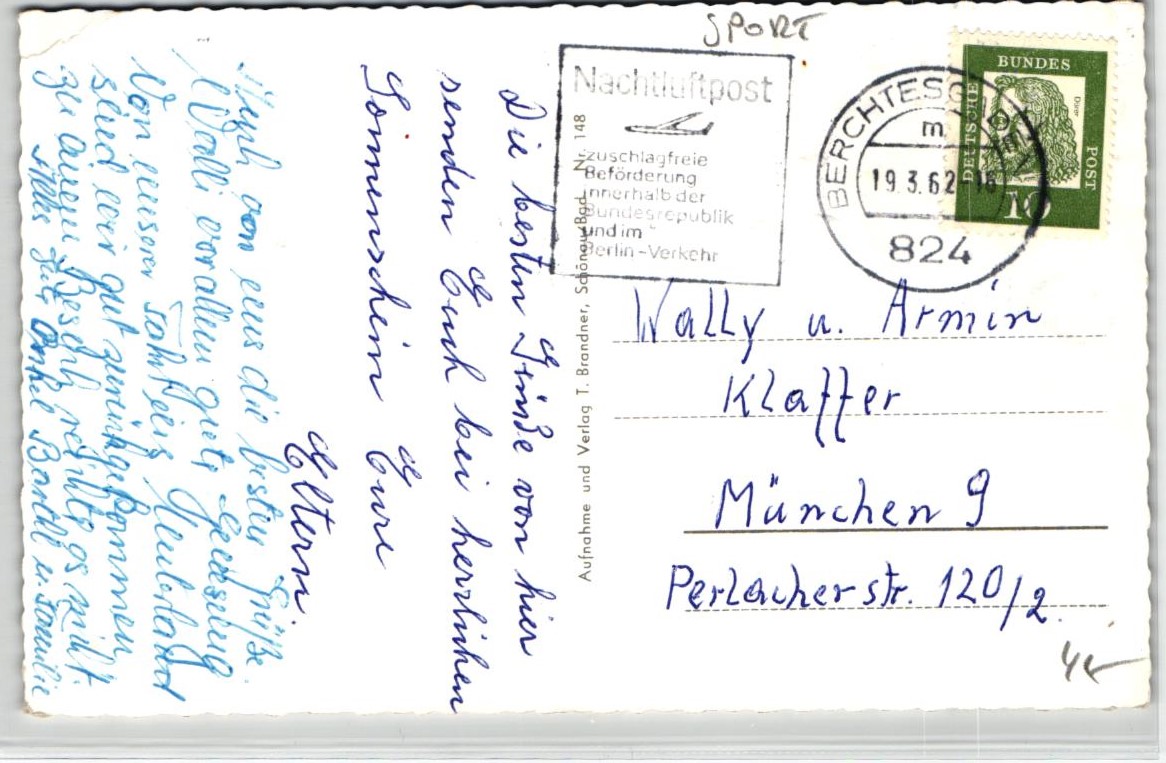 SPORT
Nachtluftpost
zuschlagfreie
Beförderung
innerhalb der
Bundesrepublik
und im
Berlin-Verkehr
BERCHTESGADEN
m
19.3.62-16
824
DEUTSCHE
BUNDES
POST
Dürer
10
Wally u. Armin
Klaffer
München 9
Perlacherstr. 120/2.
Aufnahme und Verlag T. Brandner, Schönau/Bgd. Nr. 148
Die besten Grüße von hier
senden Euch bei herrlichen
Sonnenschein Eure
Eltern.
Auch von uns die besten Grüße
Walli vor allem gute Genesung
Von unserer Fahrt
sind wir gut zurückgekommen
zu
Onkel Barthl u. Familie